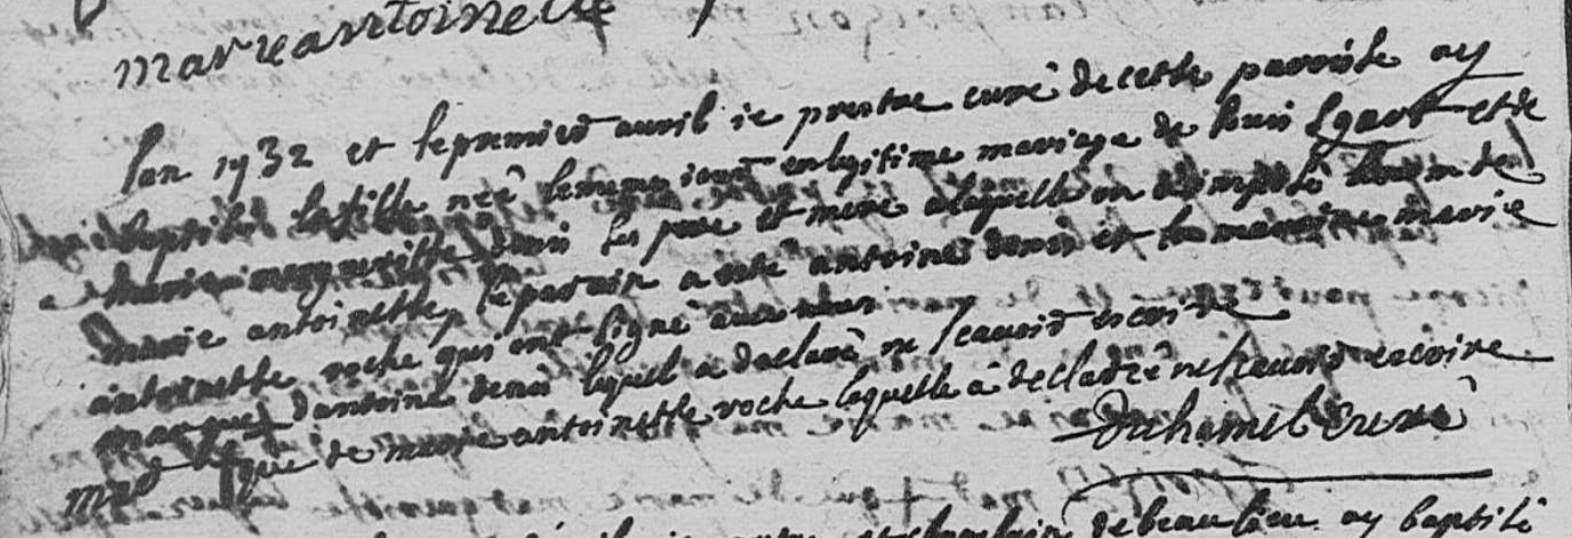 marieantoinette
lan 1732 et lepremier avril ie prestre curé decette parroisse ay
baptisé la fille neé lememe iour enlegitime mariage de louis Lgart et de
marie margueritte denis ses pere et mere alaquelle on aimposé lenom de
marie antoinette, le parain aeste antoine denis et la maraine marie
antoinette roche qui ont signé avec nous
marque + dantoine denis lequel a declaré ne scavoir escrire
mar + que de marie antoinette roche laquelle à declaré nescavoir escrire
Duhamel Curé
debeaulieu ay baptisé